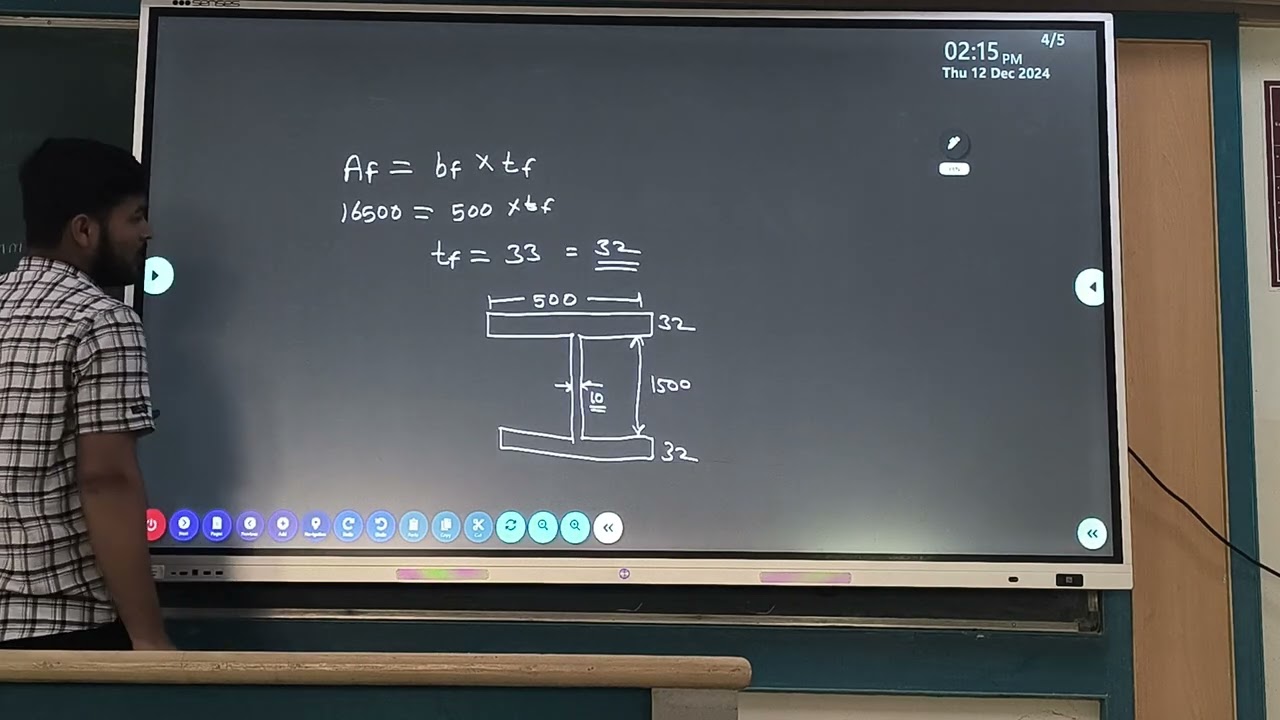 4/5
02:15 PM
Thu 12 Dec 2024
Af = bf × tf
16500 = 500 × tf
tf = 33 = 32
500
32
1500
10
32